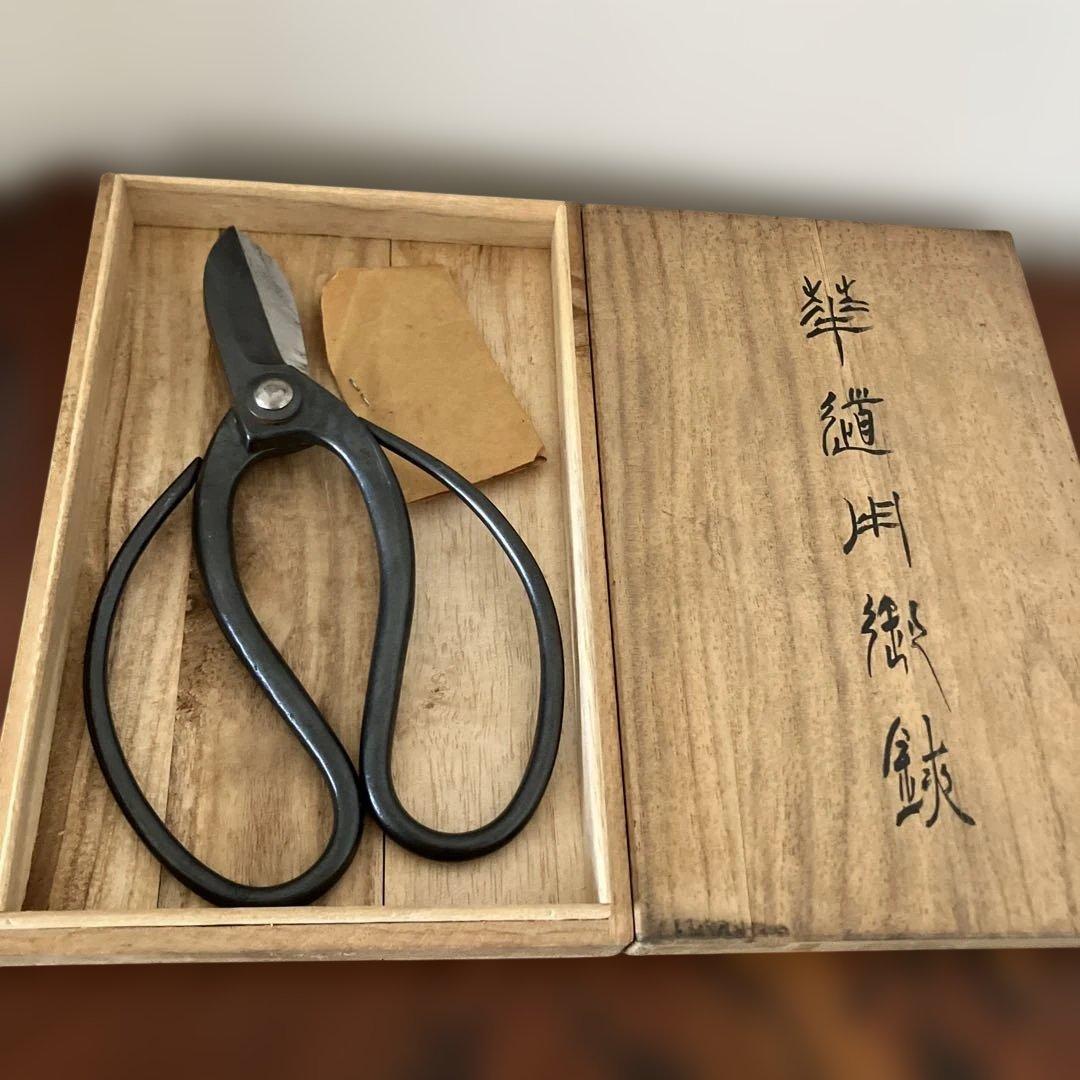 華道用御鋏